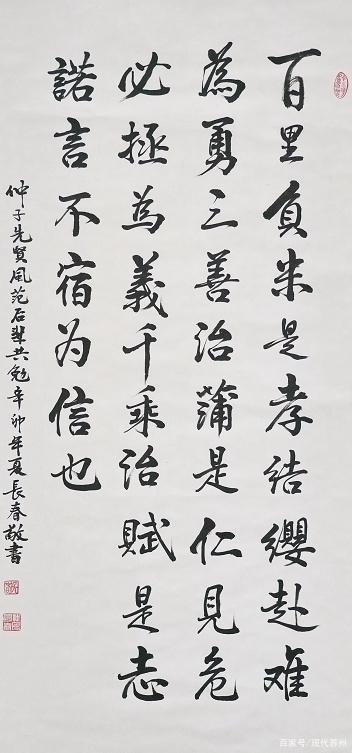 百里負米是孝结纓赴难
為勇三善治蒲是仁見危
必拯為義千乘治賦是志
諾言不宿为信也
仲子先賢風范后輩共勉辛卯年夏長春敬書
百家号/现代苏州